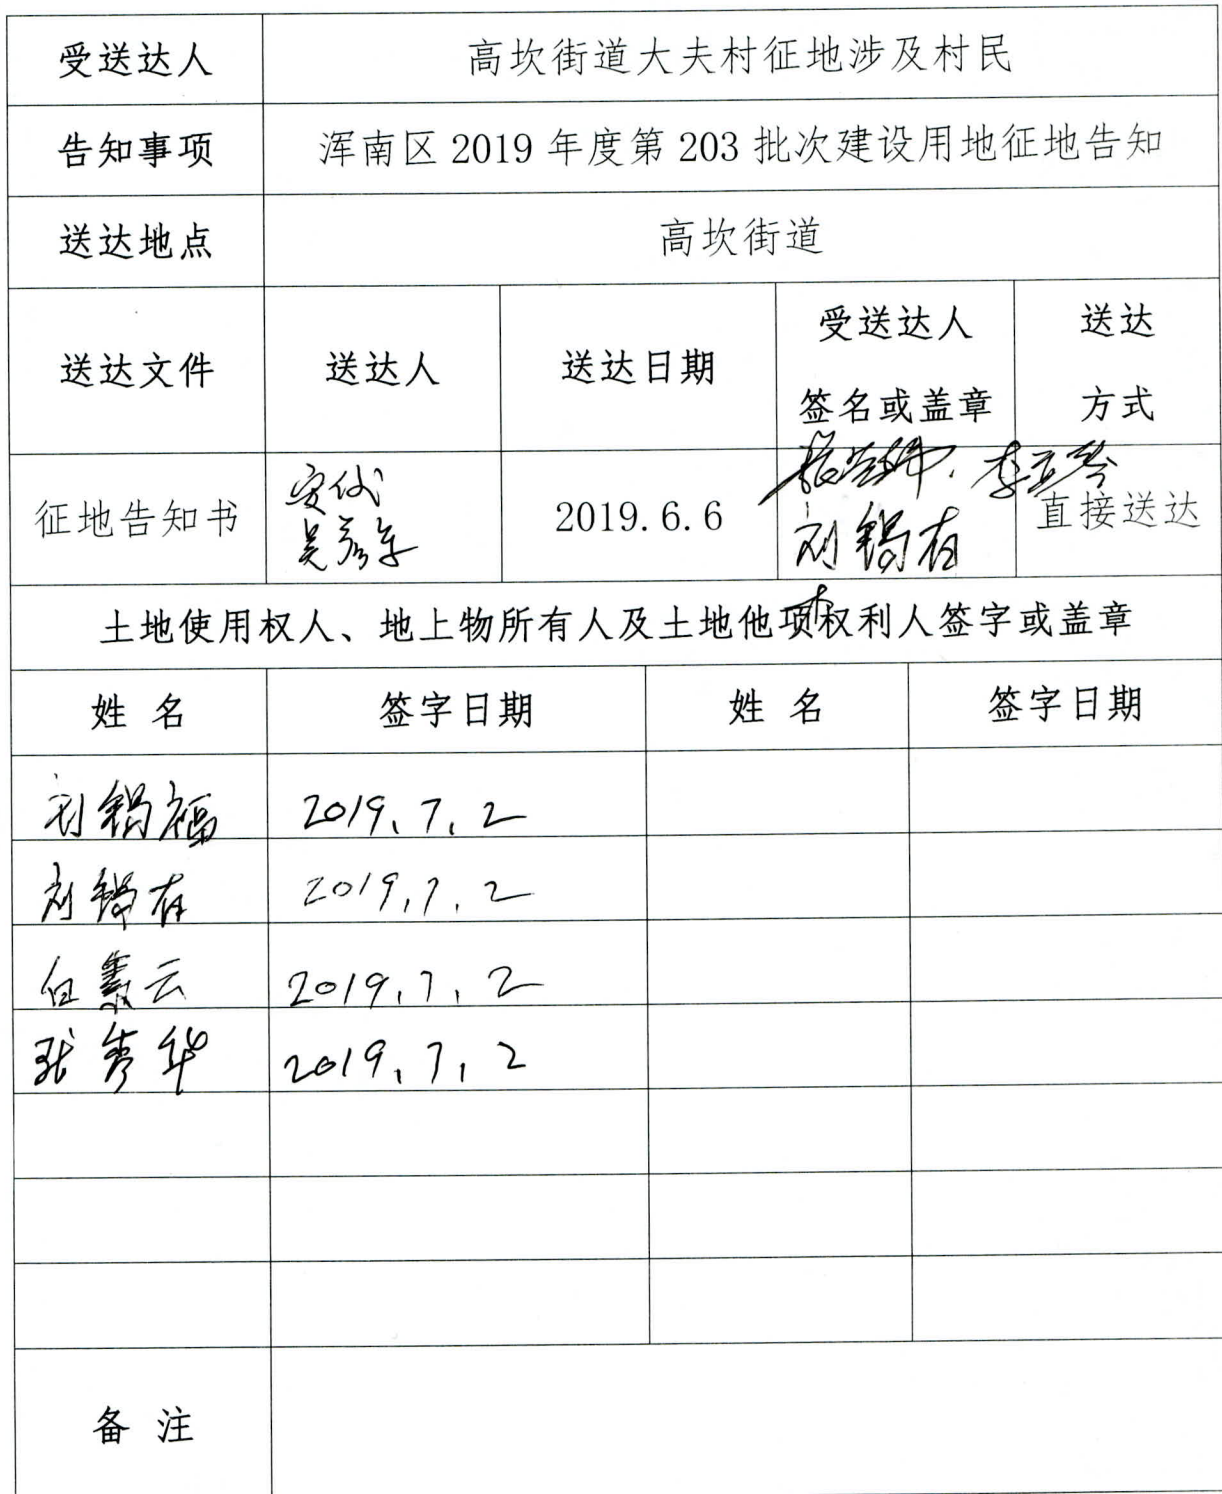 受送达人 高坎街道大夫村征地涉及村民
告知事项 浑南区 2019 年度第 203 批次建设用地征地告知
送达地点 高坎街道
送达文件 送达人 送达日期 受送达人 签名或盖章 送达 方式
征地告知书 2019.6.6 刘锡有 直接送达
土地使用权人、地上物所有人及土地他项权利人签字或盖章
姓 名 签字日期 姓 名 签字日期
刘锡福 2019.7.2
刘锡有 2019.7.2
白素云 2019.7.2
张秀华 2019.7.2
备 注